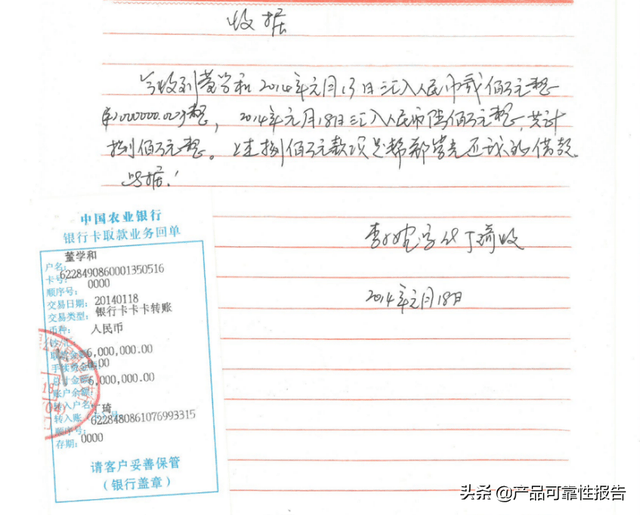 收据
今收到董学和2014年元月13日汇入人民币贰佰万元整
¥2000000.00元整，2014年元月18日汇入人民币陆佰万元整，共计
捌佰万元整。上述捌佰万元款项是帮部学先还我的借款。
此据！
李 代丁琦收
2014年元月18日
中国农业银行
银行卡取款业务回单
户名： 董学和
卡号：6228490860001350516
顺序号：0000
交易日期：20140118
交易类型：银行卡卡卡转账
币种： 人民币
6,000,000.00
手续费金额 0.00
合计金额 6,000,000.00
账户余额：
转入户名 丁琦
转入账 6228480861076993315
顺序号：
存期：0000
请客户妥善保管
（银行盖章）
头条 @产品可靠性报告